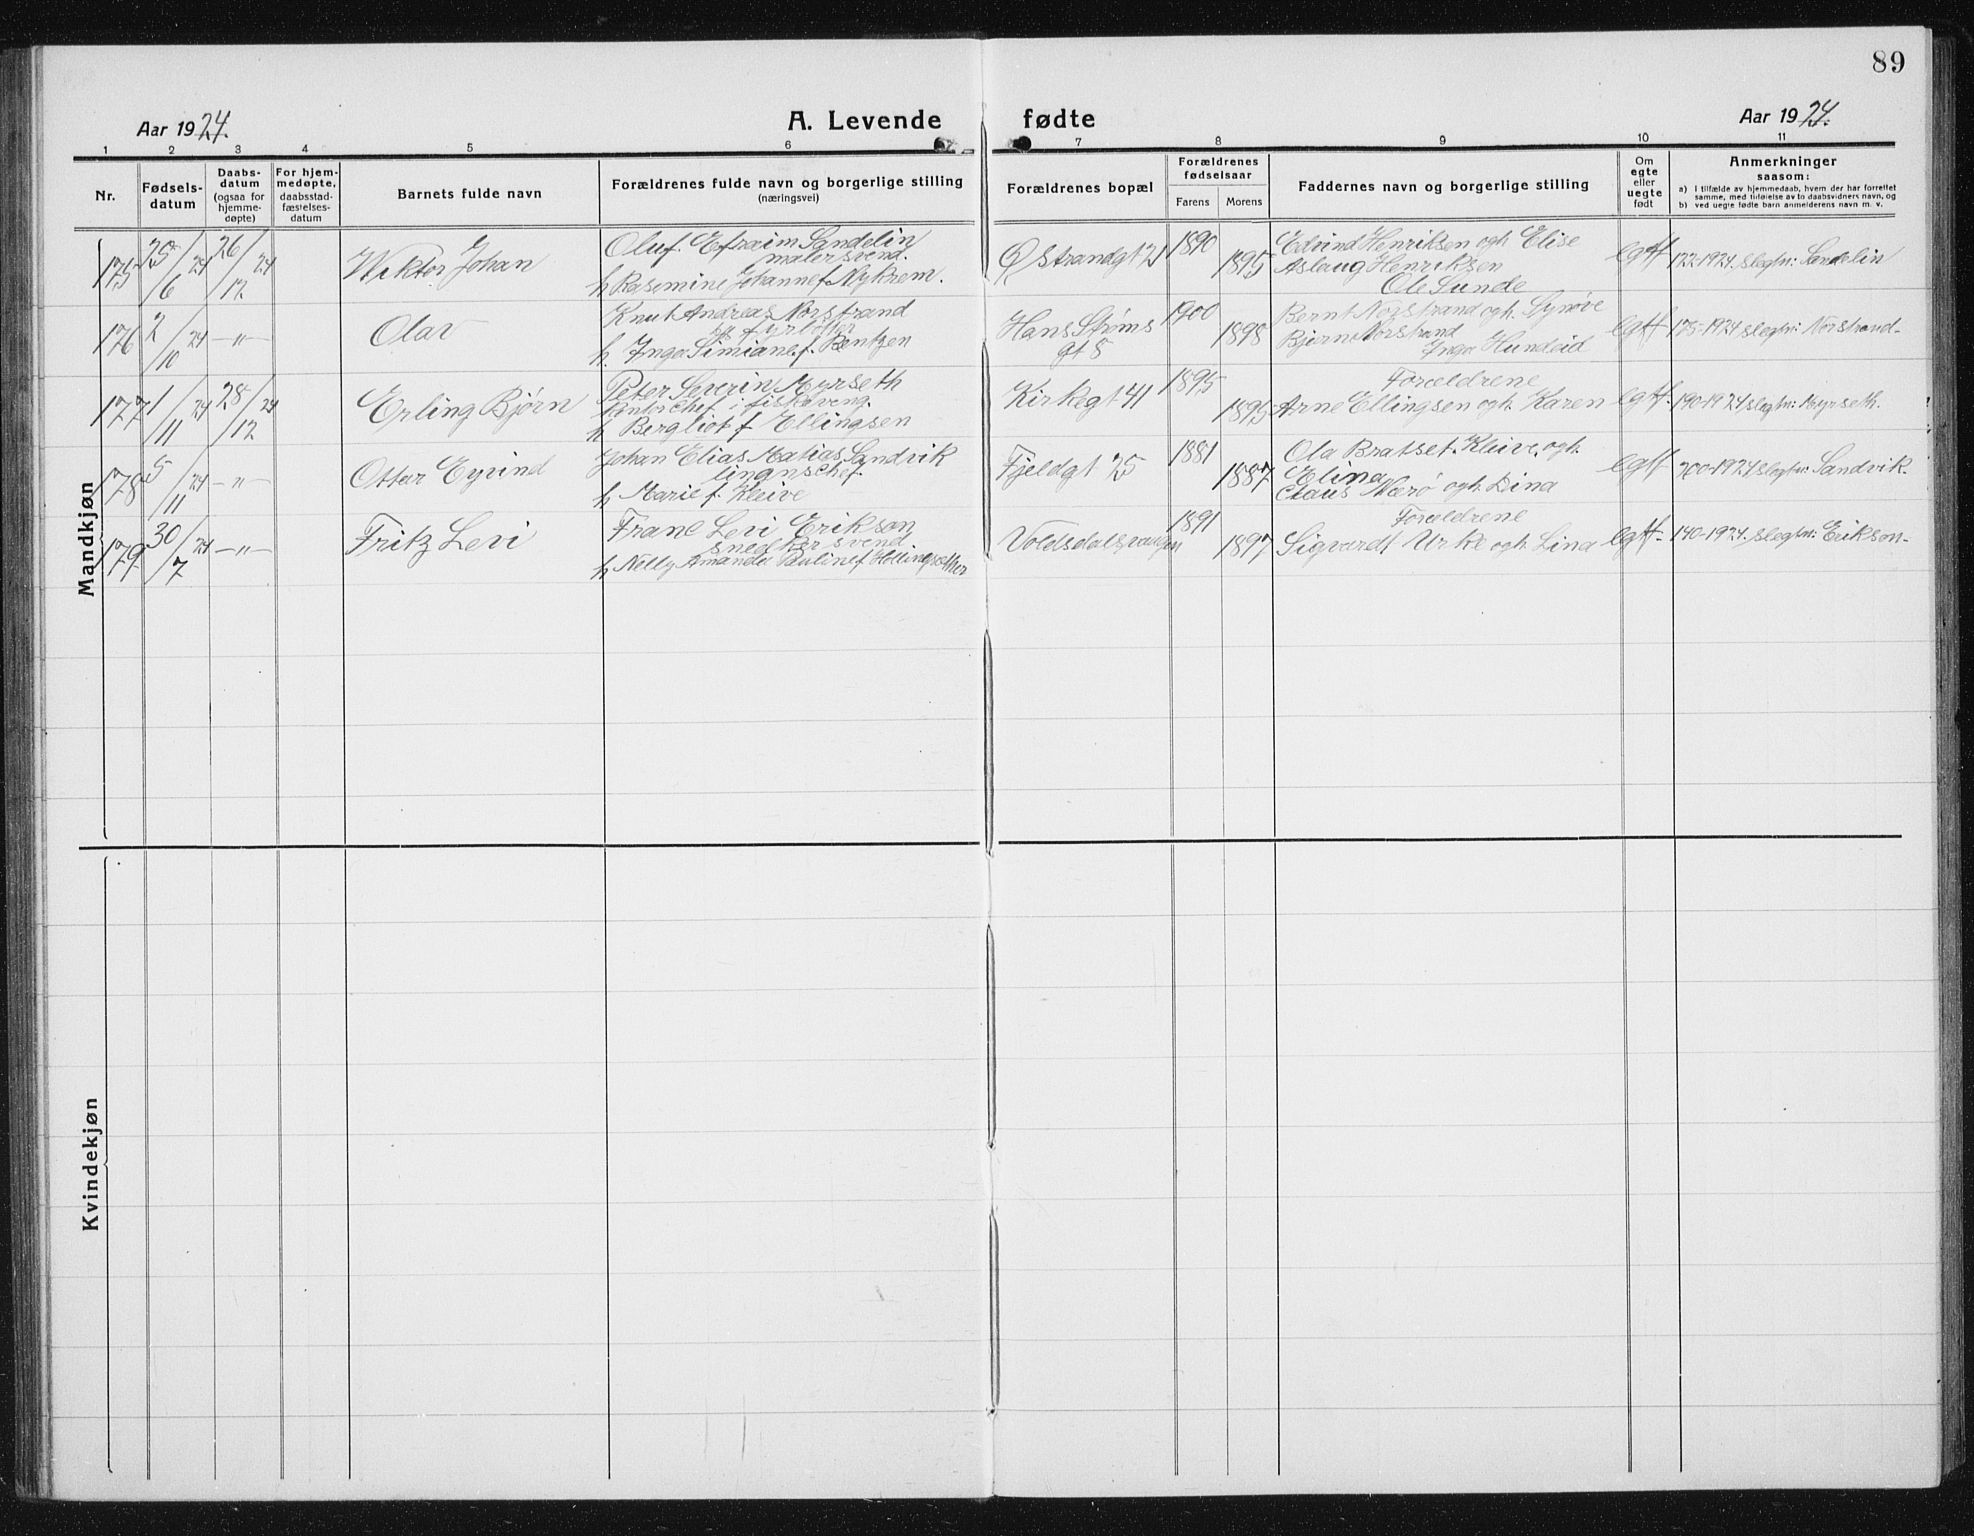 89
Aar 1924.
A. Levende fødte
Aar 1924.
1 2 3 4 5 6 7 8 9 10 11
Nr.
Fødsels-
datum
Daabs-
datum
(ogsaa for
hjemme-
døpte)
For hjem-
medøpte,
daabsstad-
fæstelses-
datum
Barnets fulde navn
Forældrenes fulde navn og borgerlige stilling
(næringsvei)
Forældrenes bopæl
Forældrenes
fødselsaar
Farens Morens
Faddernes navn og borgerlige stilling
Om
egte
eller
uegte
født
Anmerkninger
saasom:
a) I tilfælde av hjemmedaab, hvem der har forrettet
samme, med tilføielse av to daabsvidners navn, og
b) ved uegte fødte barn anmelderens navn m. v.
Mandkjøn
175 25/6 24 26/12 24
Wiktor Johan
Oluf Efraim Sandelin
malersvend.
h Rasmine Johanne f Nykrem.
Østrandgt 21
1890
1895
Edvind Henriksen ogh Elise
Aslaug Henriksen
Ole Sunde
egtf
122-1924. slegtn: Sandelin
176 2/10 24 —"—
Olav
Knut Andreas Norstrand
fyrbøter
h. Inga Simiane f. Bentzen
Hans Strøms
gt 8
1900
1898
Bernt Norstrand ogh. Synøve
Bjørn Norstrand
Inga Hundeid
egtf
175-1924 slegtn: Norstrand-
177 1/11 24 28/12 24
Erling Bjørn
Peter Severin Myrseth
kontorchef i fiskeveng.
h Bergliot f Ellingsen
Kirkegt 41
1895
1895
Forældrene
Arne Ellingsen ogh. Karen
egtf.
190-1924 slegtn: Myrseth.
178 5/11 24 —"—
Ottar Eyvind
Johan Elias Matias Sandvik
h Marie f. Kleive
Fjeldgt 25
1881
1887
Ola Bratset. Kleive, ogh.
Elina
Claus Nærø ogh. Dina
egtf
200-1924 slegtn: Sandvik.
179 30/7 24 —"—
Fritz Levi
Franc Levi Erikson
snedkersvend
h Nelly Amanda Pauline f
1891
1897
Forældrene
Sigvardt Urke ogh. Lina
egtf-
140-1924. slegtn: Erikson-
Kvindekjøn